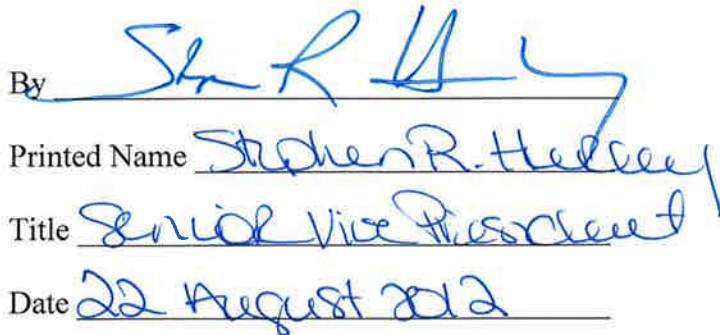 By
Printed Name Stephen R.
Title Senior Vice President
Date 22 August 2012